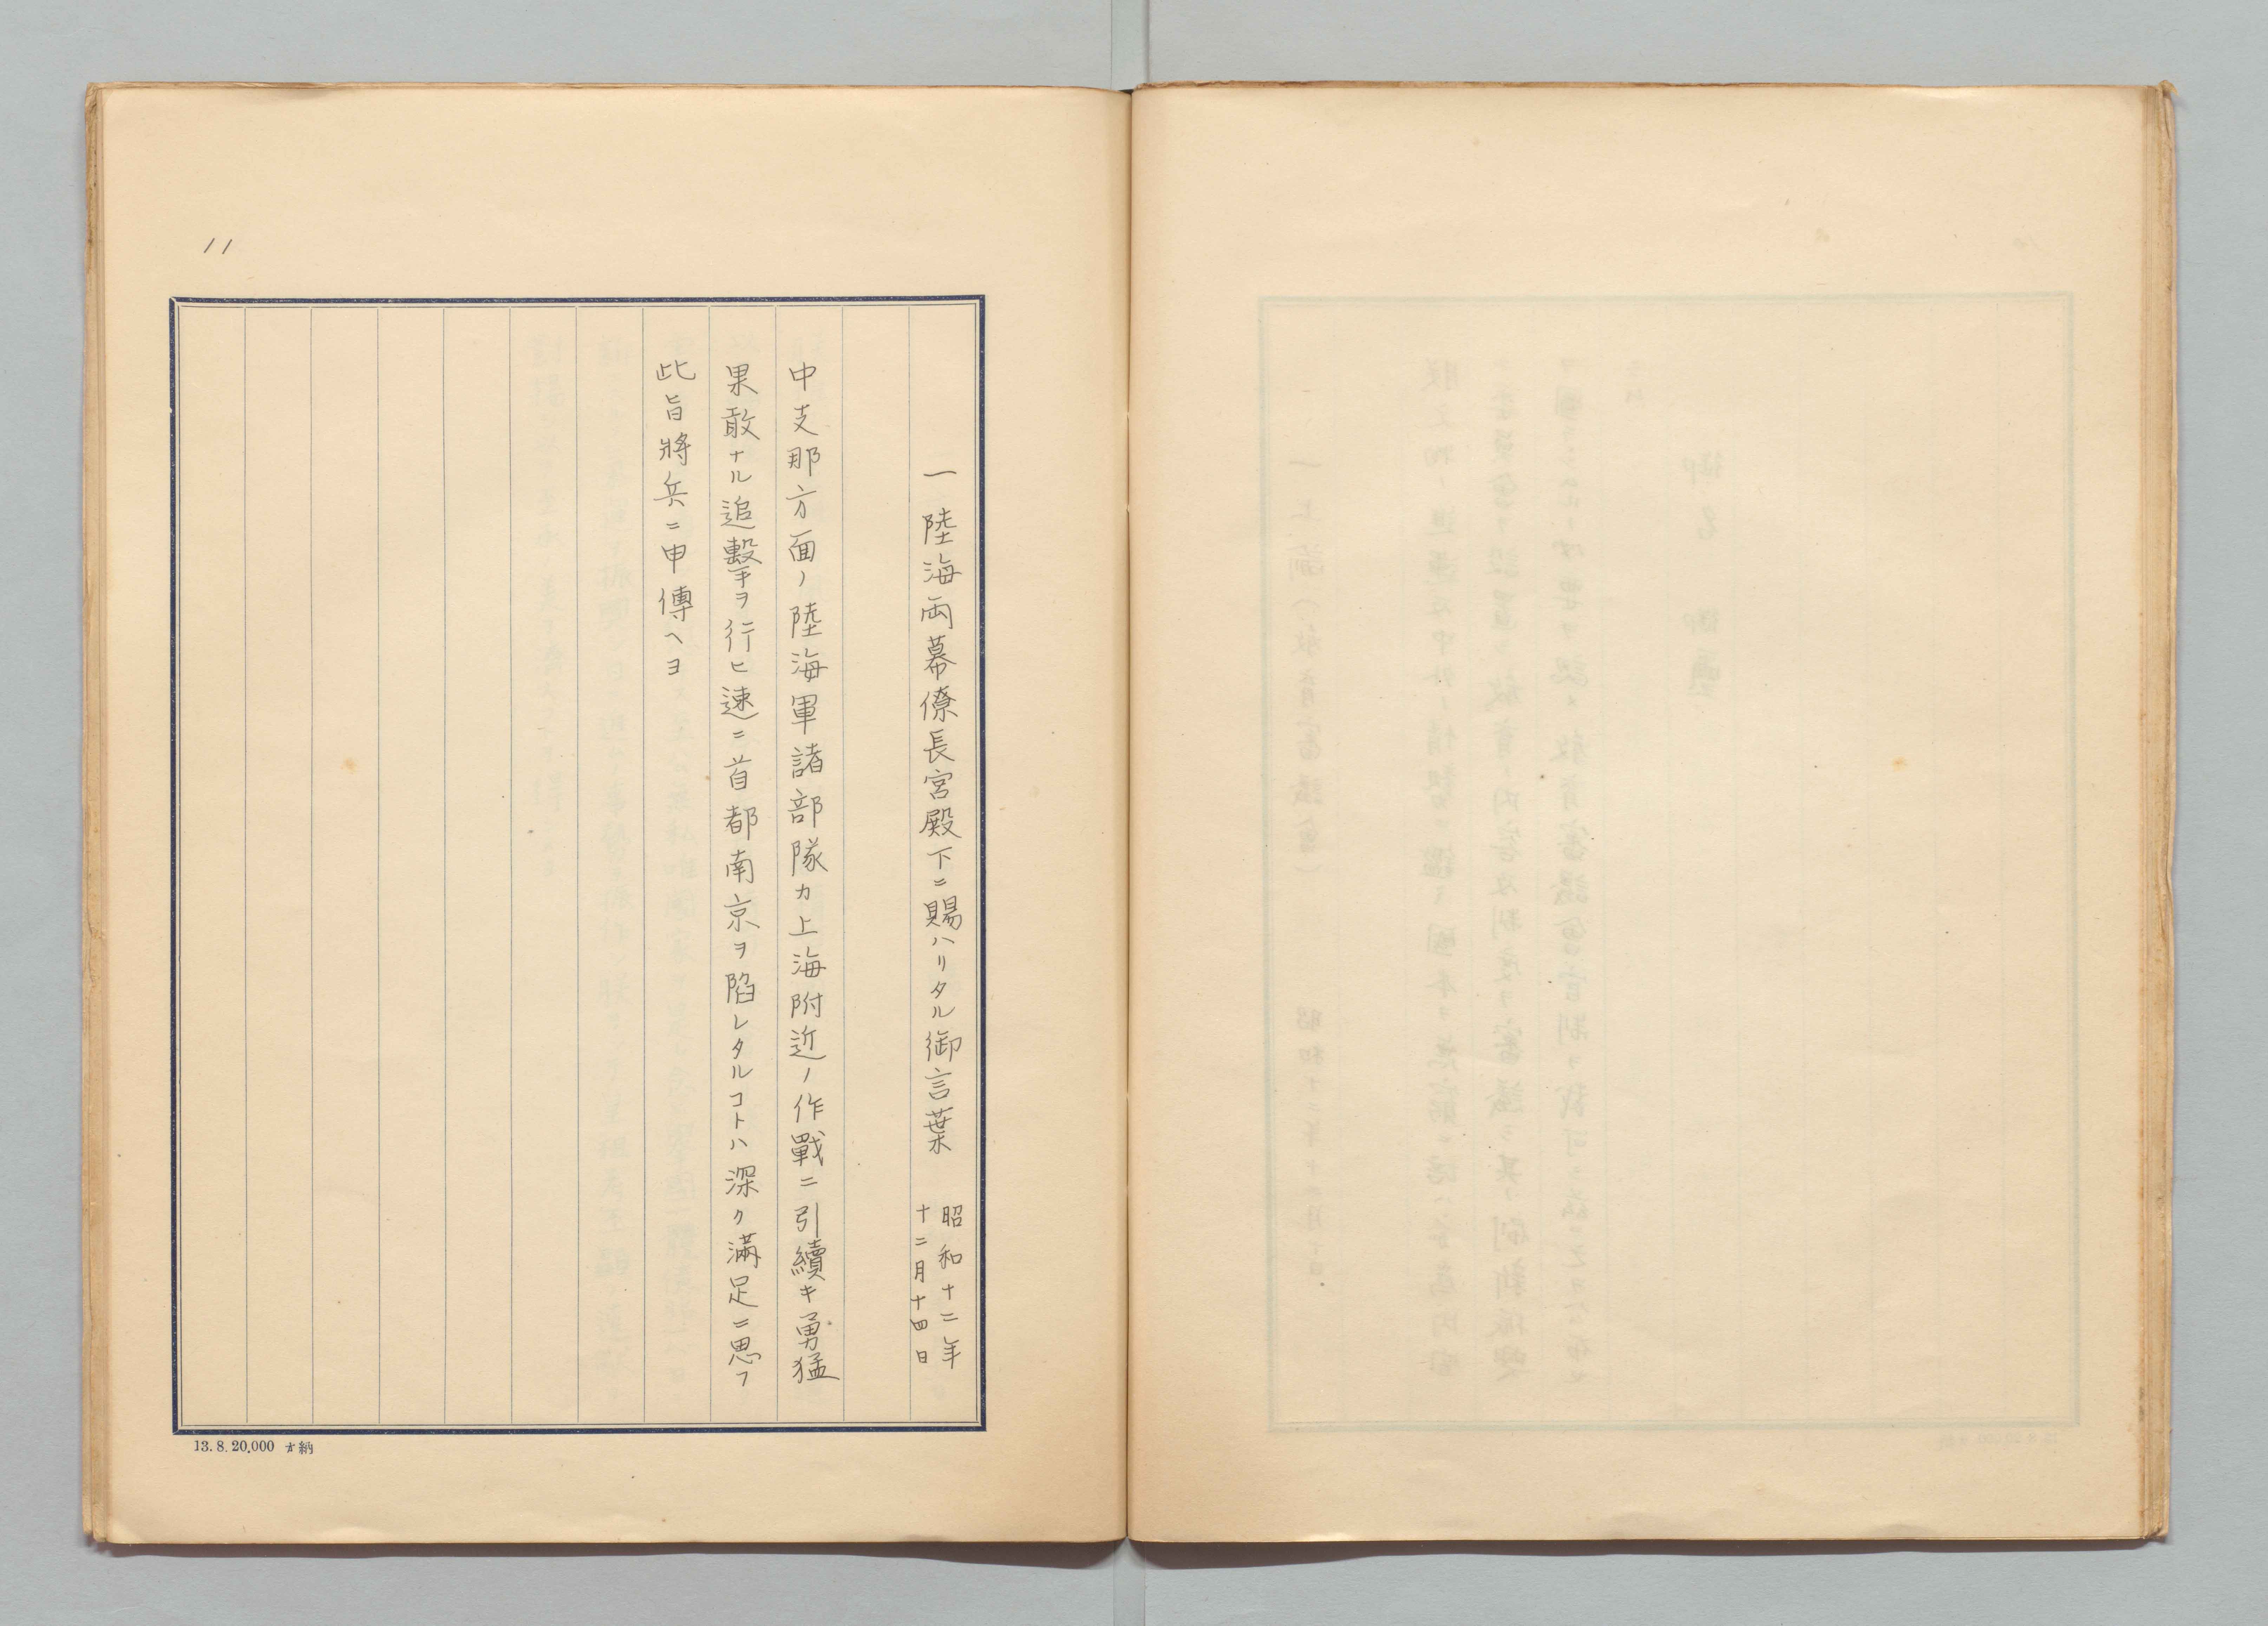 11
一 陸海両幕僚長宮殿下ニ賜ハリタル御言葉 昭和十二年
十二月十四日
中支那方面ノ陸海軍諸部隊カ上海附近ノ作戰ニ引續キ勇猛
果敢ナル追擊ヲ行ヒ速ニ首都南京ヲ陷レタルコトハ深ク滿足ニ思フ
此旨將兵ニ申傳ヘヨ
13.8.20.000 納